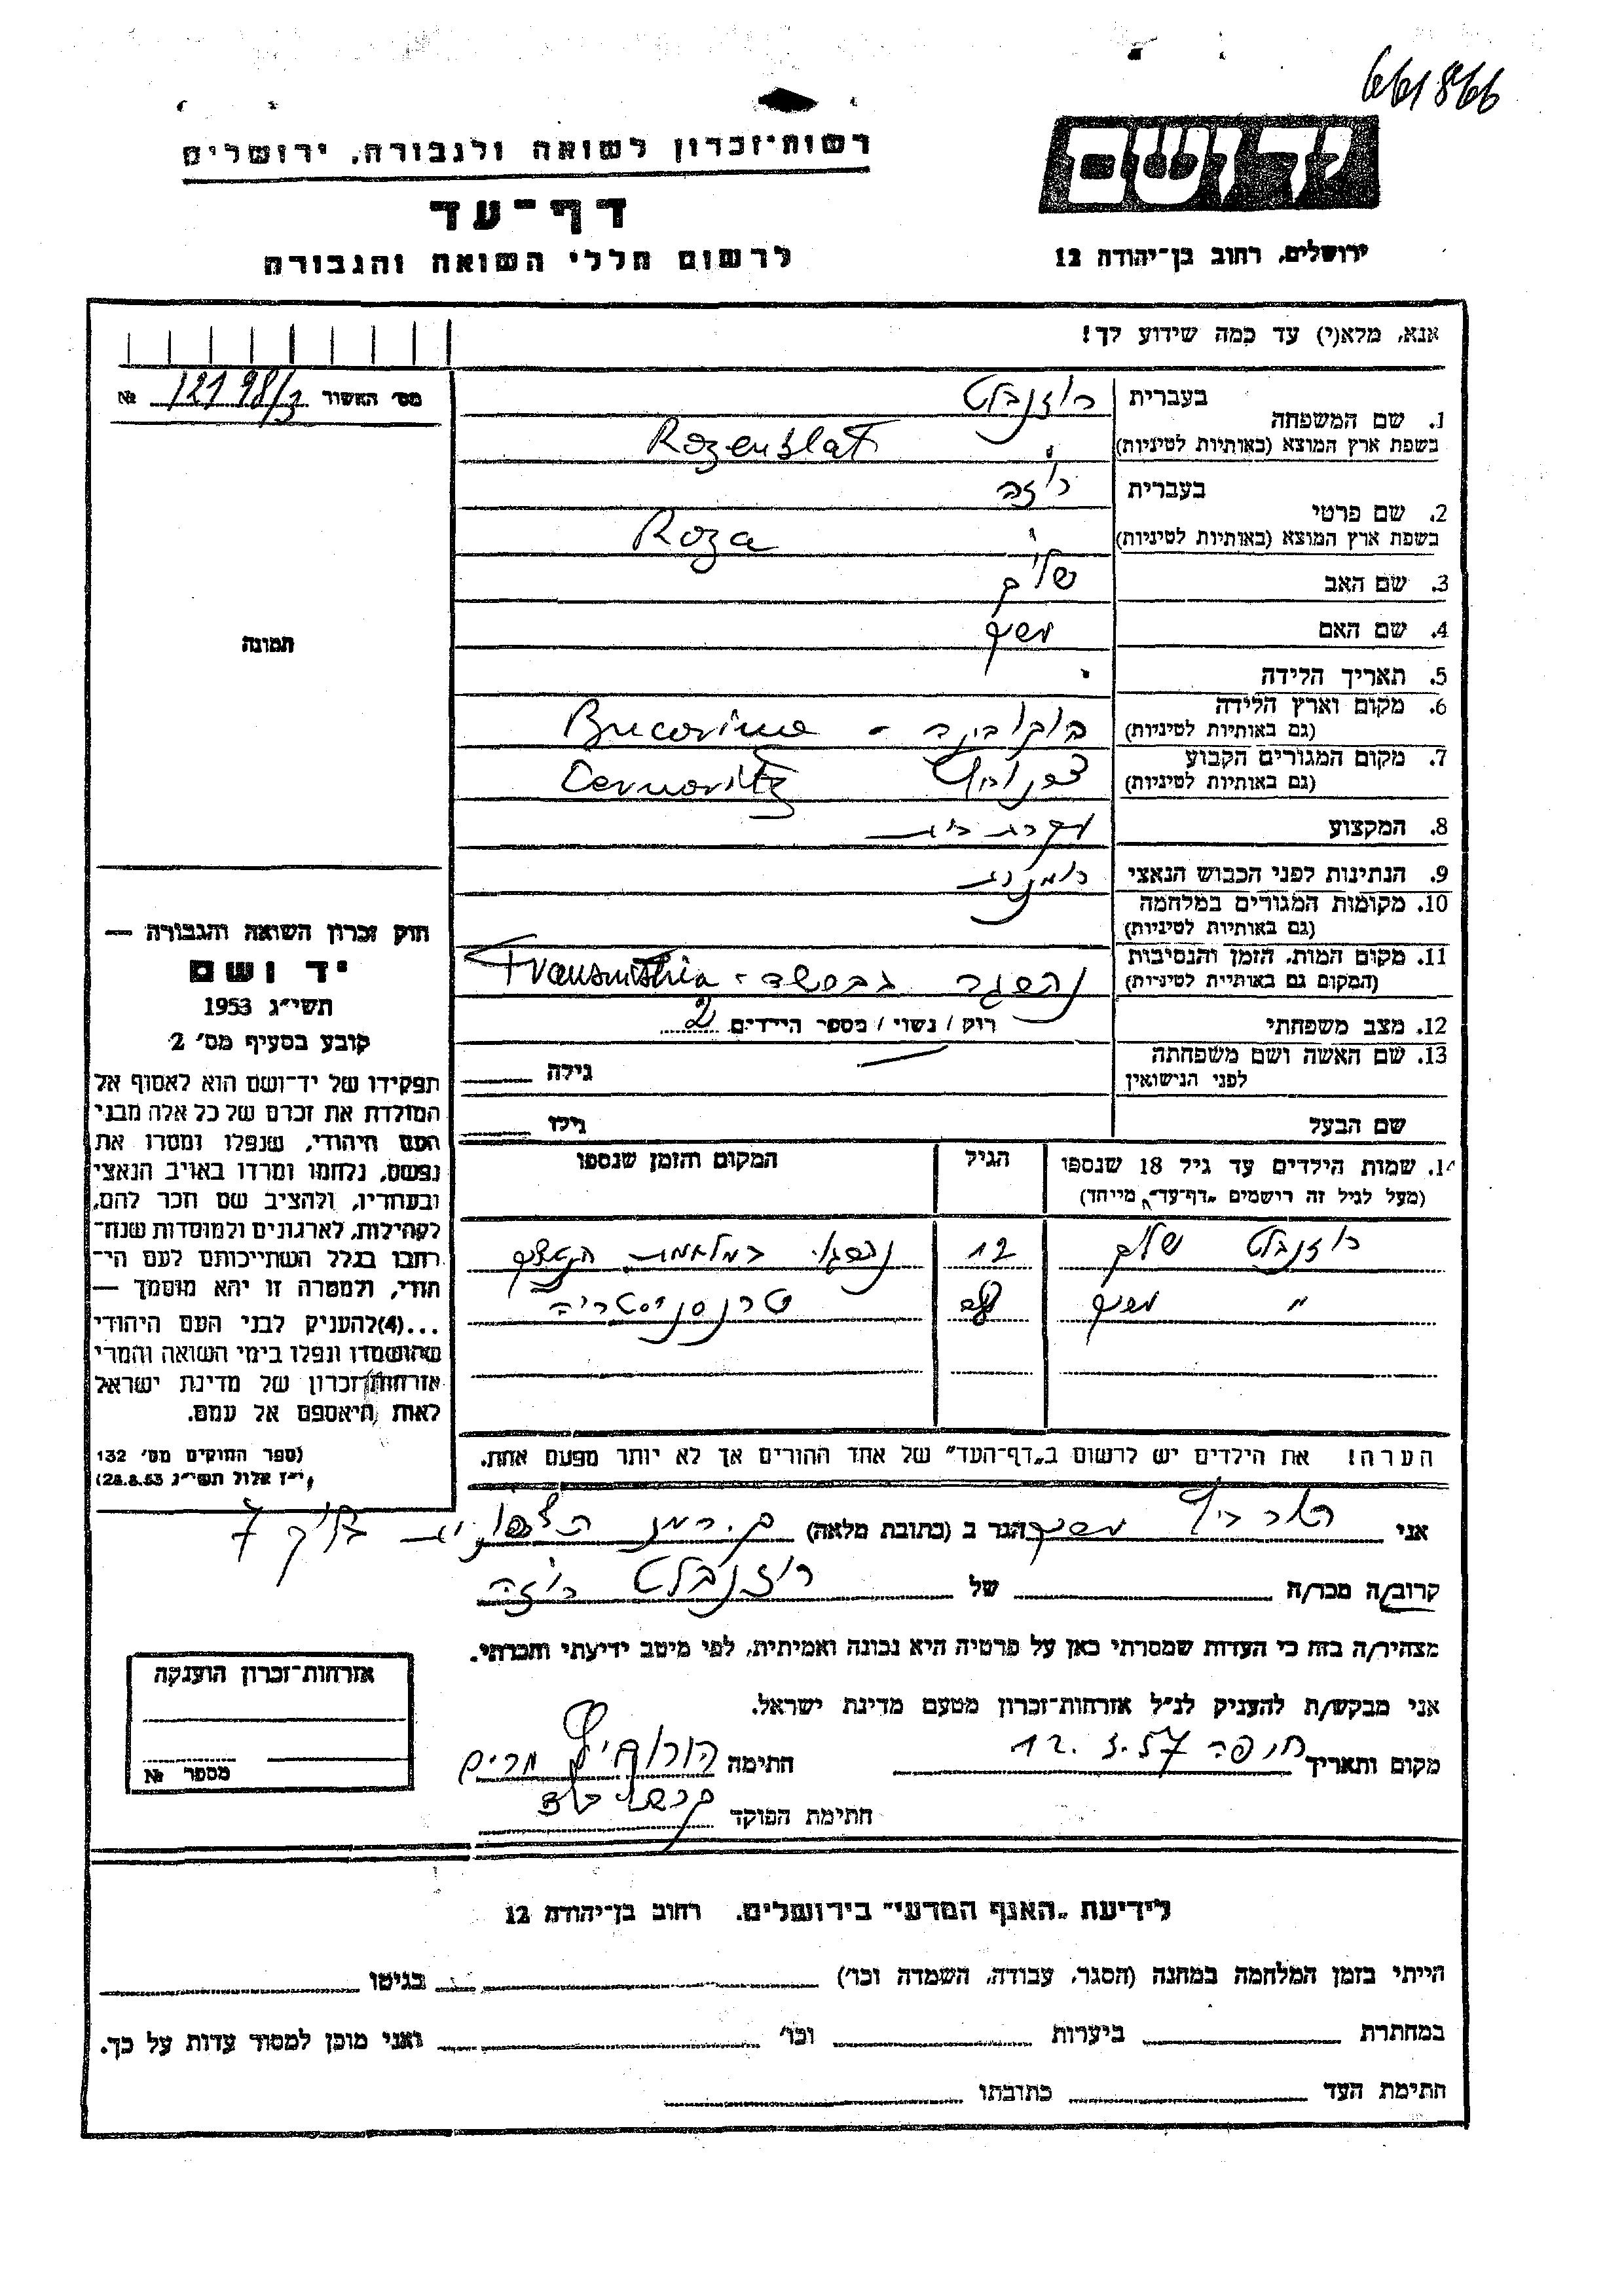 661866
רשות־זכרון לשואה ולגבורה, ירושלים
ידושם
דף־עד
לרשום חללי השואה והגבורה
ירושלים, רחוב בן־יהודה 12
אנא, מלא(י) עד כמה שידוע לך!
מס׳ האשור 12198/3 №
1. שם המשפחה
בעברית רוזנבלט
בשפת ארץ המוצא (באותיות לטיניות) Rozenblat
2. שם פרטי
בעברית רוזה
בשפת ארץ המוצא (באותיות לטיניות) Roza
3. שם האב שלום
4. שם האם
תמונה
5. תאריך הלידה
6. מקום וארץ הלידה
(גם באותיות לטיניות) בוקובינה - Bucovina
7. מקום המגורים הקבוע
(גם באותיות לטיניות) צרנוביץ Cernovitz
8. המקצוע עקרת בית
9. הנתינות לפני הכבוש הנאצי רומנית
10. מקומות המגורים במלחמה
(גם באותיות לטיניות)
11. מקום המות, הזמן והנסיבות
(המקום גם באותיות לטיניות) נהרגה Transnistria
12. מצב משפחתי רוק / נשוי / מספר הילדים 2
13. שם האשה ושם משפחתה
לפני הנישואין גילה
שם הבעל גילו
14. שמות הילדים עד גיל 18 שנספו הגיל המקום והזמן שנספו
(מעל לגיל זה רישמים „דף־עד" מייחד)
רוזנבלט שלום 12
" טרנסניסטריה
הערה! את הילדים יש לרשום ב„דף־העד" של אחד ההורים אך לא יותר מפעם אחת.
חוק זכרון השואה והגבורה —
יד ושם
תשי״ג 1953
קובע בסעיף מס׳ 2
תפקידו של יד־ושם הוא לאסוף אל
המולדת את זכרם של כל אלה מבני
העם היהודי, שנפלו ומסרו את
נפשם, נלחמו ומרדו באויב הנאצי
ובעוזריו, ולהציב שם וזכר להם,
לקהילות, לארגונים ולמוסדות שנח־
רחבו בגלל השתייכותם לעם הי־
הודי, ולמטרה זו יהא מוסמך —
...(4)להעניק לבני העם היהודי
שהושמדו ונפלו בימי השואה והמרי
אזרחות־זכרון של מדינת ישראל
לאות היאספם אל עמם.
(ספר החוקים מס׳ 132
י״ז אלול תשי״ג 28.8.53)
אני הורביץ הגר ב (כתובת מלאה) 7
קרוב/ה מכר/ה של רוזנבלט רוזה
מצהיר/ה בזה כי העדות שמסרתי כאן על פרטיה היא נכונה ואמיתית, לפי מיטב ידיעתי והכרתי.
אני מבקש/ת להעניק לנ״ל אזרחות־זכרון מטעם מדינת ישראל.
מקום ותאריך חיפה 12.3.57 חתימה הורוביץ מרים
חתימת הפוקד
אזרחות־זכרון הוענקה
מספר №
לידיעת „האגף המדעי" בירושלים. רחוב בן־יהודה 12
הייתי בזמן המלחמה במחנה (הסגר, עבודה, השמדה וכו׳) בגיטו
במחתרת ביערות וכו׳ ואני מוכן למסור עדות על כך.
חתימת העד כתובתו